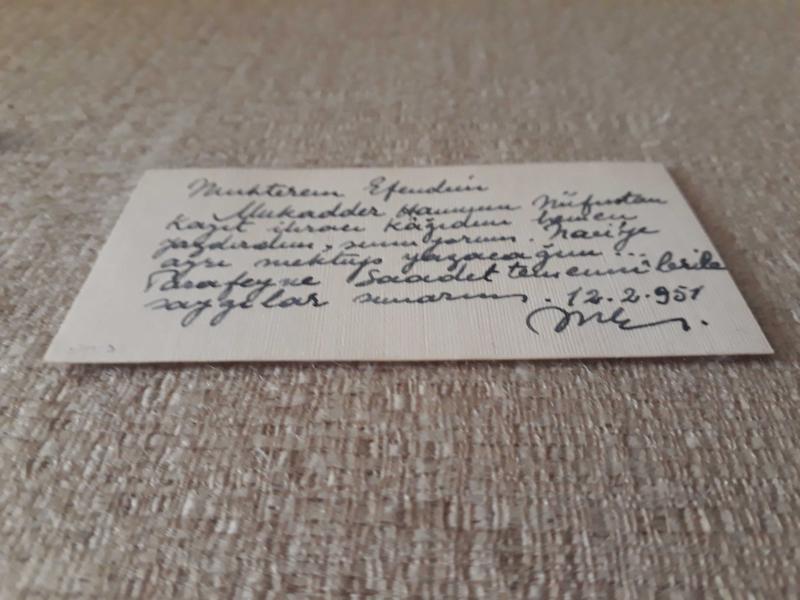 Muhterem Efendim
Mukadder Hanımın Nüfustan
Kayıt ihracı kâğıdını hemen
yazdırdım, sunuyorum. Naci'ye
ayrı mektup yazacağım ...
Tarafeyne Saadet temennilerile
saygılar sunarım. 12.2.951